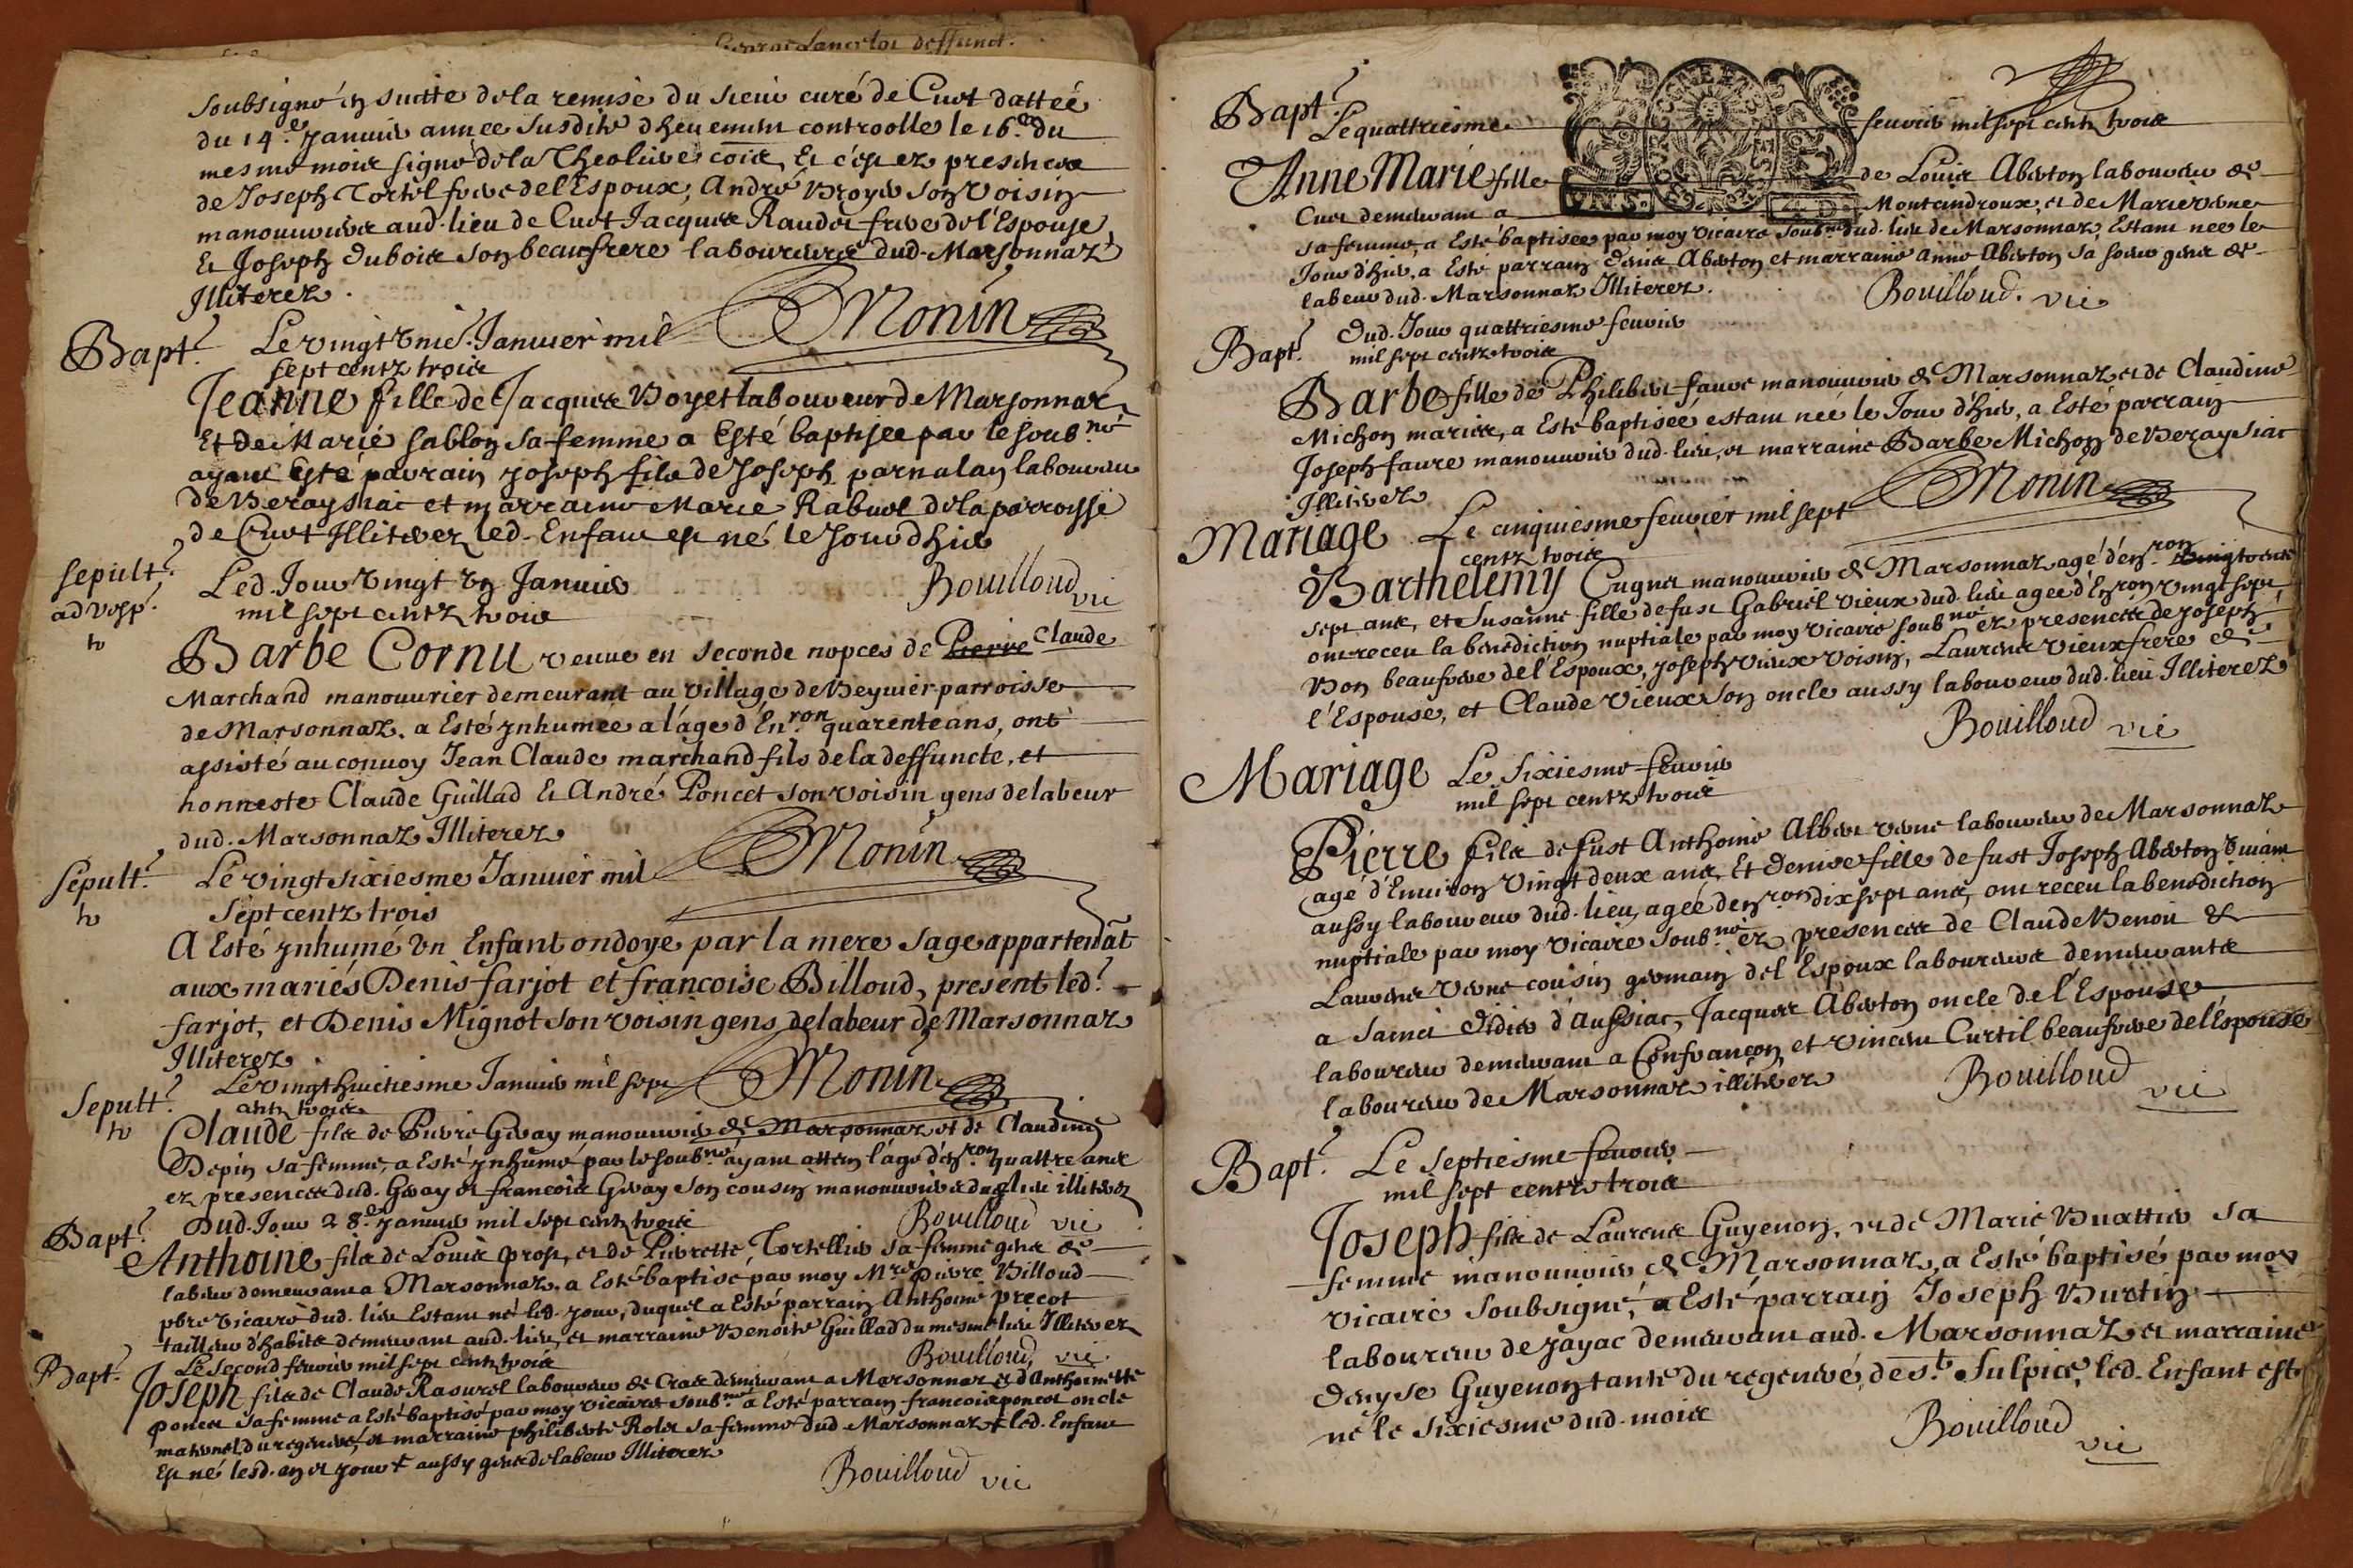 George Lancelot deffunct.
Soubsigné en suitte de la remise du sieur curé de Cuet dattéé
du 14.e Januier annee susdite dheuement controolle le 16.e du
mesme mois signé de la Theoliere cõis, Et c'est ez presences
de Joseph Tortel frere de l'Espoux, André Broyer son voisin
manouuriers aud. lieu de Cuet Jacques Raudet frere de l'Espouse,
Et Joseph Dubois son beaufrere laboureurs dud. Marsonnaz
Illiterez.
Monin
Bapt.
Le vingt vnie. Januier mil
sept centz trois
Jeanne fille de Jacques Boyet laboureur de Marsonnaz
Et de Marie Sablon sa femme a Esté baptisee par le soub.né
ayant Esté parrain Joseph fils de Joseph parnalan laboureur
de Beraysiat et marraine Marie Rabuel de la parroisse
de Cuet Illiterez led. Enfant est né le Jour d'hier
Bouilloud vic
Sepult.
ad vesp.
Led. Jour vingt vn Januier
mil sept centz trois
Barbe Cornu veuue en seconde nopces de Pierre Claude
Marchand manouurier demeurant au village de Beyuier parroisse
de Marsonnaz. a Esté ynhumée a láge d'En.ron quarente ans, ont
assisté au conuoy Jean Claude marchand fils de la deffuncte, et
honneste Claude Guillad Et André Poncet son voisin gens de labeur
dud. Marsonnaz Illiterez
Monin
Sepult.
Le vingt sixiesme Januier mil
Sept centz trois
A Esté ynhumé vn Enfant ondoyé par la mere sage appartenãt
aux mariés Denis farjot et francoise Billoud, present led.
farjot, et Denis Mignot son voisin gens de labeur de Marsonnaz
Illiterez
Monin
Sepult.
Le vingt huictiesme Januier mil sept
centz trois
Claude fils de Pierre Gway manouurier de Marsonnaz et de Claudine
Depin sa femme, a Esté ynhumé par le soub.né ayant attein l'áge d'en.ron quattre ans
ez presences dud. Gway et francois Gway son cousin manouuriers dud. lieu illiterez
Bouilloud vic
Bapt.
Dud. Jour 28.e Januier mil sept centz trois
Anthoine fils de Louis prost, et de Pierrette Tortellier sa femme gens de
labeur demeurant a Marsonnaz, a Esté baptisé par moy M.re Pierre Billoud
pbre vicaire dud. lieu Estant né led. jour, duquel a Esté parrain Anthoine precot
tailleur d'habits demeurant aud. lieu, et marraine Benoite Guillad du mesme lieu Illiterez
Bouilloud, vic.
Bapt.
Le second feurier mil sept centz trois
Joseph fils de Claude Rasurel laboureur de Cras demeurant a Marsonnaz et d'Anthoinette
poncet sa femme a Esté baptisé par moy vicaire soub.né a Esté parrain francois poncet oncle
maternel du regeneré, et marraine philiberte Rolet sa femme dud. Marsonnaz + led. Enfant
Est né lesd. an et jour + aussy gens de labeur Illiterez
Bouilloud vic
Bapt.
Le quattriesme feurier mil sept centz trois
Anne Marie fille de Louis Aberton laboureur de
Cuet demeurant a Montcindroux, et de Marie verne
sa femme, a Esté baptisée par moy vicaire soub.né dud. lieu de Marsonnaz, Estant née le
Jour d'hier, a Esté parrain Denis Aberton et marraine Anne Aberton sa soeur gens de
labeur dud. Marsonnaz Illiterez.
Bouilloud. vic
Bapt.
Dud. Jour quattriesme feurier
mil sept centz trois
Barbe fille de Philibert faure manouurier de Marsonnaz et de Claudine
Michon mariés, a Esté baptisée estant née le Jour d'hier, a Esté parrain
Joseph faure manouurier dud. lieu, et marraine Barbe Michon de Beraysiat
Illiterez
Monin
Mariage
Le cinquiesme feurier mil sept
centz trois
Barthelemy Cugnet manouurier de Marsonnaz agé d'en.ron vingt
sept ans, et Susanne fille de fust Gabriel vieux dud. lieu agee d'En.ron vingt sept
ont receu la benediction nuptiale par moy vicaire soub.né ez presences de Joseph
Bon beaufrere de l'Espoux, Joseph vieux voisin, Laurens vieux frere de
l'Espouse, et Claude Vieux son oncle aussy laboureur dud. lieu Illiterez
Bouilloud vic
Mariage
Le Sixiesme feurier
mil sept centz trois
Pierre fils de fust Anthoine Albert verne laboureur de Marsonnaz
agé d'Enuiron vingt deux ans, Et Denise fille de fust Joseph Aberton viuant
aussy laboureur dud. lieu, agéé d'en.ron dix sept ans, ont receu la benediction
nuptiale par moy vicaire soub.né ez presences de Claude Benoit &
Laurens Verne cousin germain de l'Espoux laboureurs demeurants
a Sainct Didier d'Aussiac, Jacques Aberton oncle de l'Espouse
laboureur demeurant a Confrançon et vincent Curtil beaufrere de l'Espouse
laboureur de Marsonnaz illiterez
Bouilloud vic
Bapt.
Le Septiesme feurier
mil sept centz trois
Joseph fils de Laurens Guyenon, et de Marie Buattier sa
femme manouuriers de Marsonnaz, a Esté baptisé par moy
vicaire soubsigné, a Esté parrain Joseph Burtin
laboureur de jayac demeurant aud. Marsonnaz et marraine
Denyse Guyenon tante du regeneré, de S.t Sulpice, led. Enfant est
né le sixiesme dud. mois
Bouilloud vic